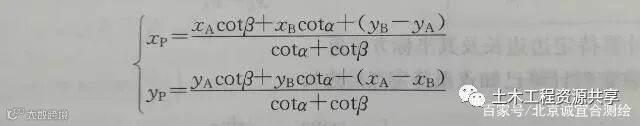 x_P = (x_A cotβ + x_B cotα + (y_B − y_A)) / (cotα + cotβ)
y_P = (y_A cotβ + y_B cotα + (x_A − x_B)) / (cotα + cotβ)
大数跨境
土木工程资源共享
百家号/北京诚宜合测绘